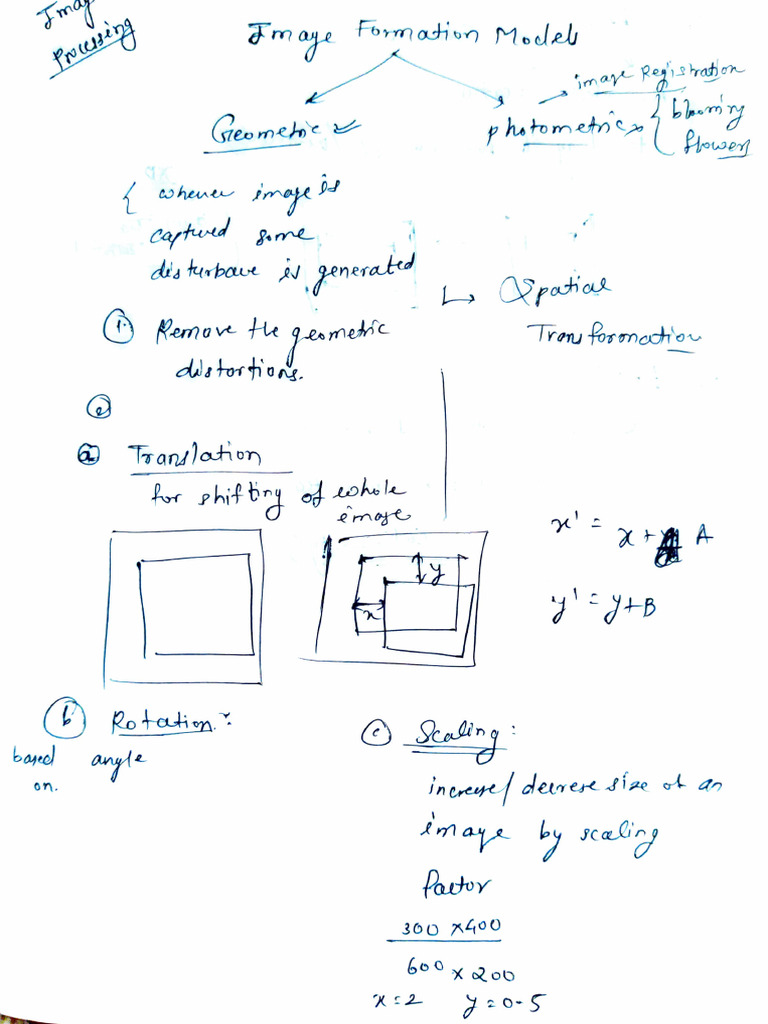 Image
Processing
Image Formation Models
Geometric
photometric
image Registration
blooming
flowers
whenever image is
captured some
disturbance is generated
① Remove the geometric
distortions.
↳ Spatial
Transformation
②
ⓐ Translation
for shifting of whole
image
y
x
x' = x + A
y' = y + B
ⓑ Rotation :
based on angle
ⓒ Scaling :
increase/ decrese size of an
image by scaling
factor
300 x 400
600 x 200
x = 2 y = 0.5